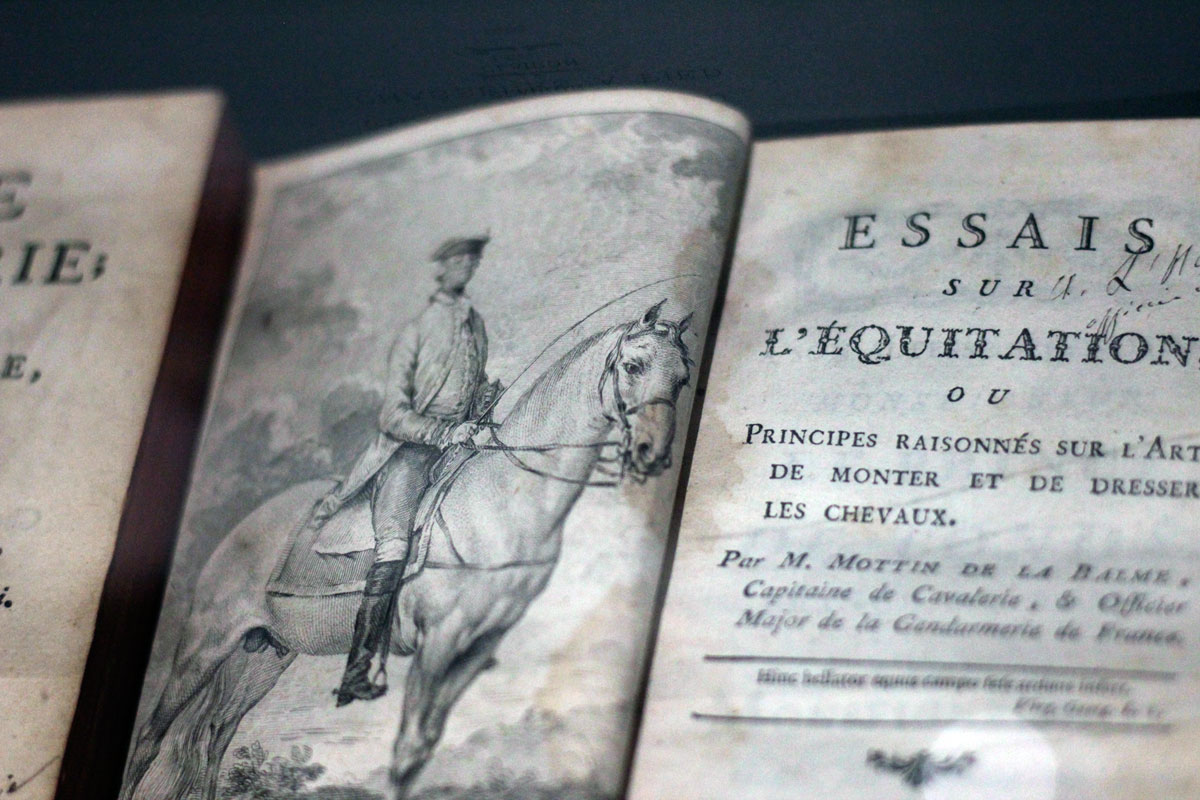 E
RIE;
E,
ESSAIS
SUR
L'ÉQUITATION,
OU
PRINCIPES RAISONNÉS SUR L'ART
DE MONTER ET DE DRESSER
LES CHEVAUX.
Par M. MOTTIN DE LA BALME,
Capitaine de Cavalerie, & Officier
Major de la Gendarmerie de France.
Hinc bellator equus campo sese arduus infert.
Virg. Georg.